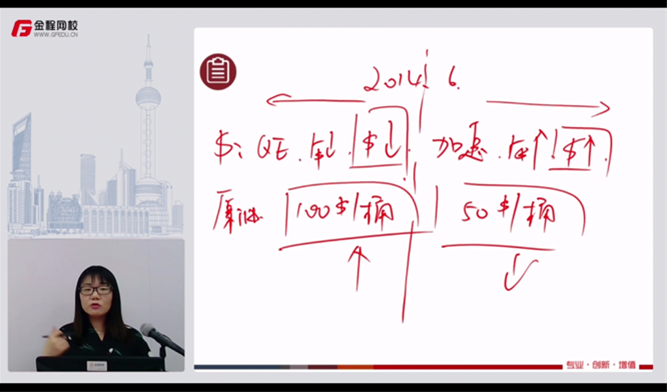 金程网校
WWW.GFEDU.CN
2014. 6.
$: QE. $↓. 加息. $↑.
原油 100$/桶 50$/桶
↑ ↓
专业·创新·增值